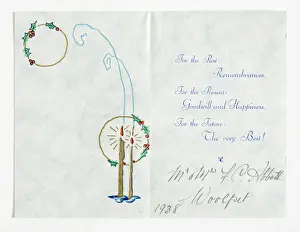 For the Past:
Remembrances.
For the Present:
Goodwill and Happiness,
For the Future:
The very Best!
Mr & Mrs Abbott
Woolpit
1938